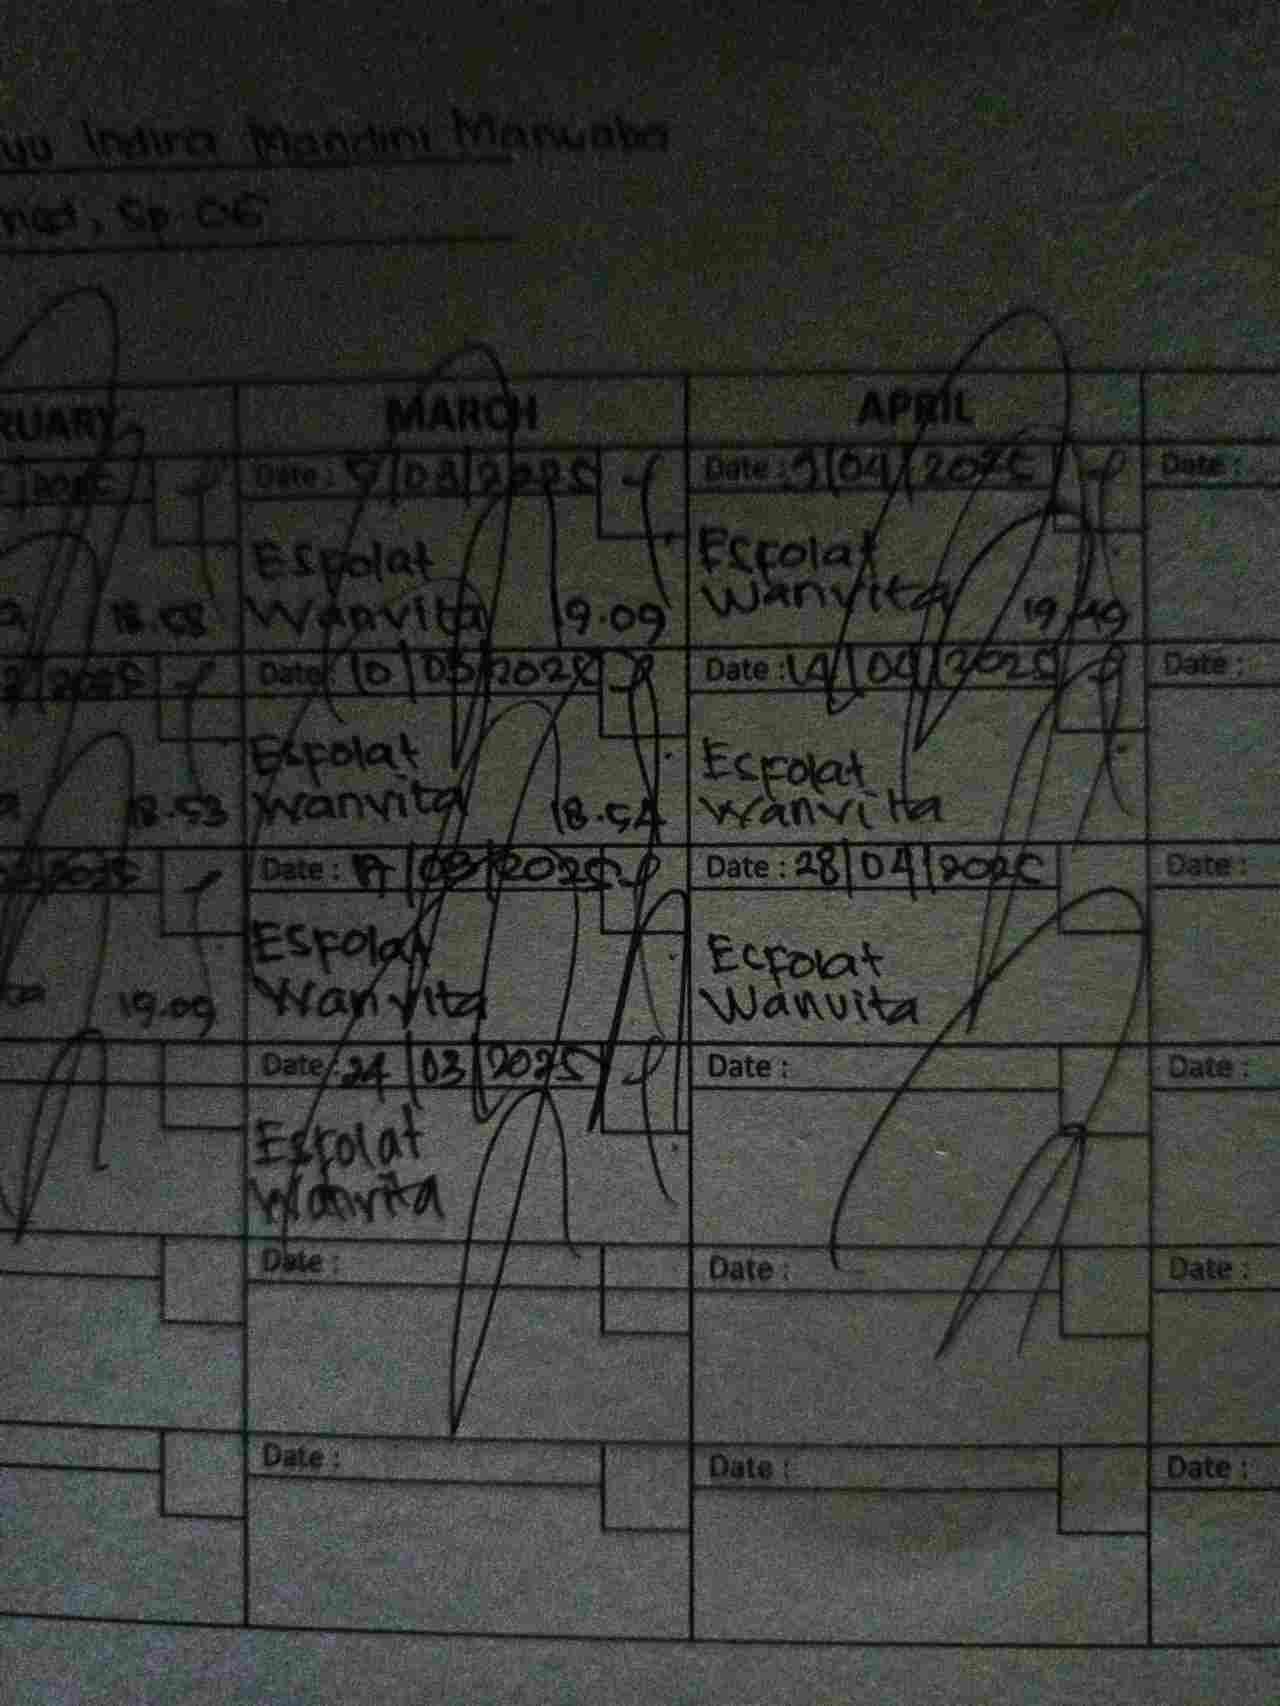 Indira Mandini
Sp. OG
RUARY MARCH APRIL
Date : Date : /04/ Date :
Esfolat
Wanvita 19.09
Esfolat
Wanvita 19.49
18.58
Date : 10/03/2025 Date : 14/04/2025 Date :
Esfolat
Wanvita 18.54
Esfolat
Wanvita
18.53
Date : 17/03/2025 Date : 28/04/2025 Date :
Esfolat
Wanvita
Esfolat
Wanvita
19.09
Date : 24/03/2025 Date : Date :
Esfolat
Wanvita
Date : Date : Date :
Date : Date : Date :